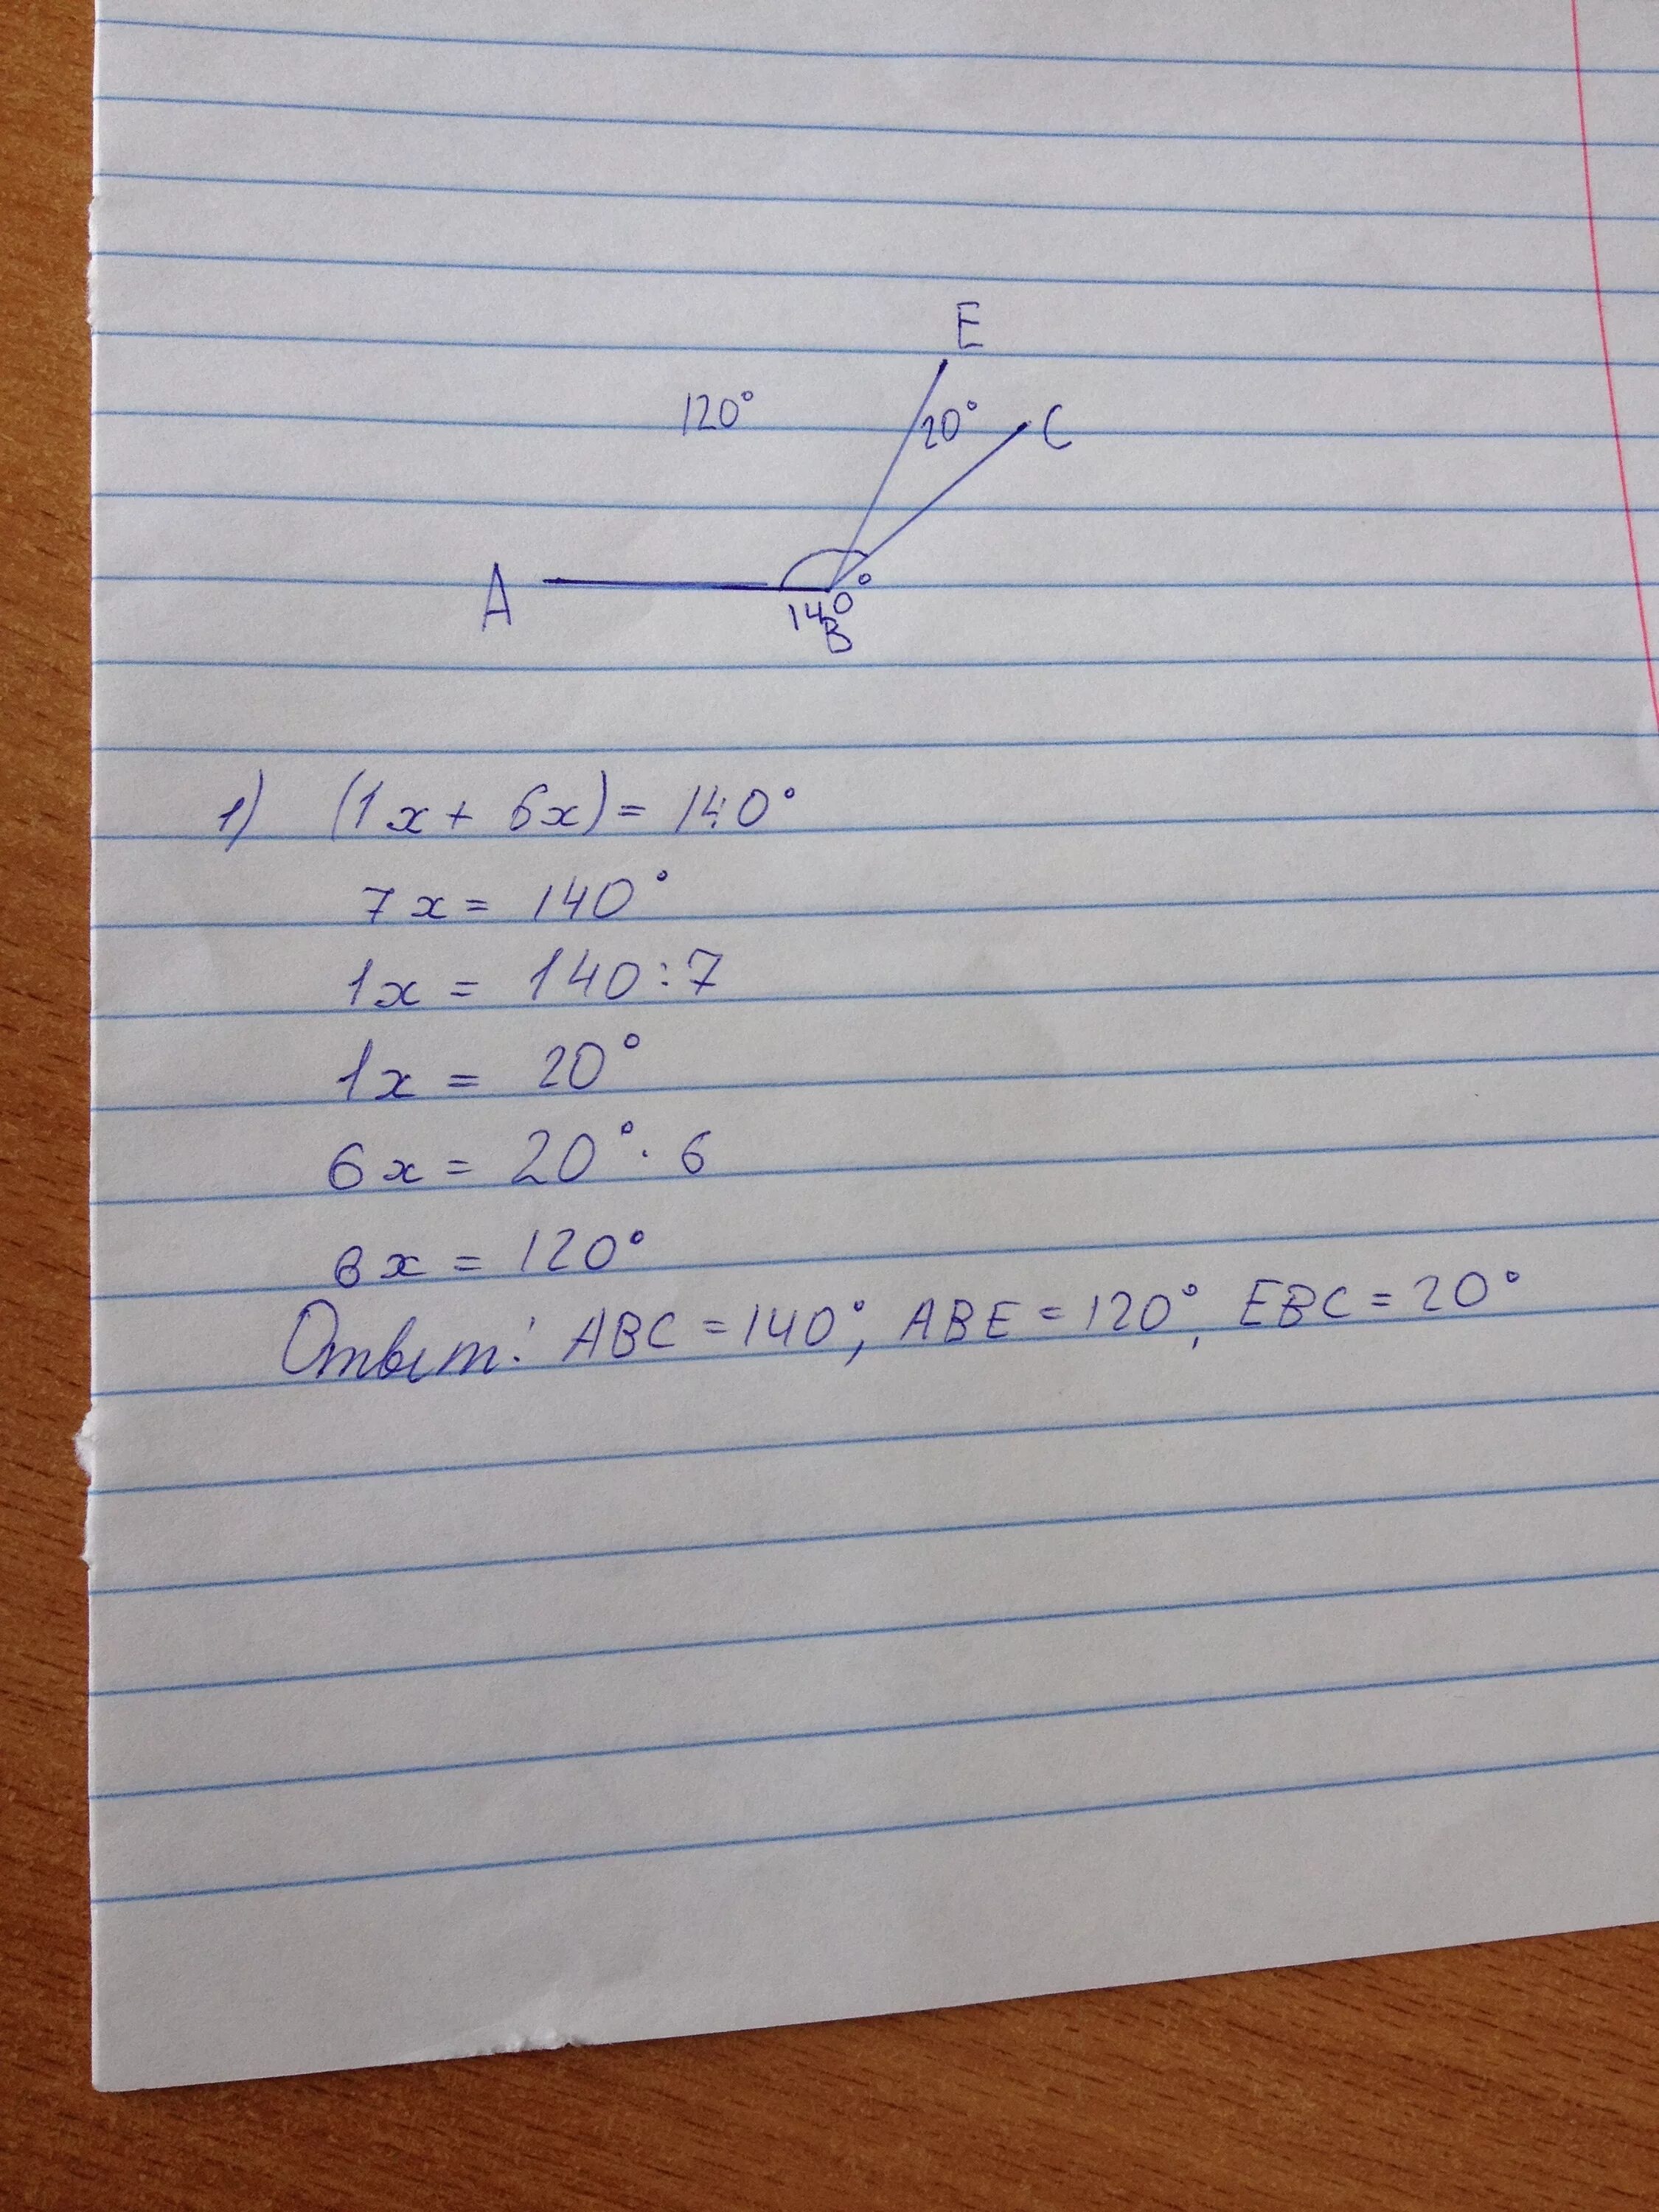 E
120°
20°
C
A
140°
B
1) (1x + 6x) = 140°
7x = 140°
1x = 140:7
1x = 20°
6x = 20° · 6
6x = 120°
Ответ: ABC = 140°, ABE = 120°, EBC = 20°